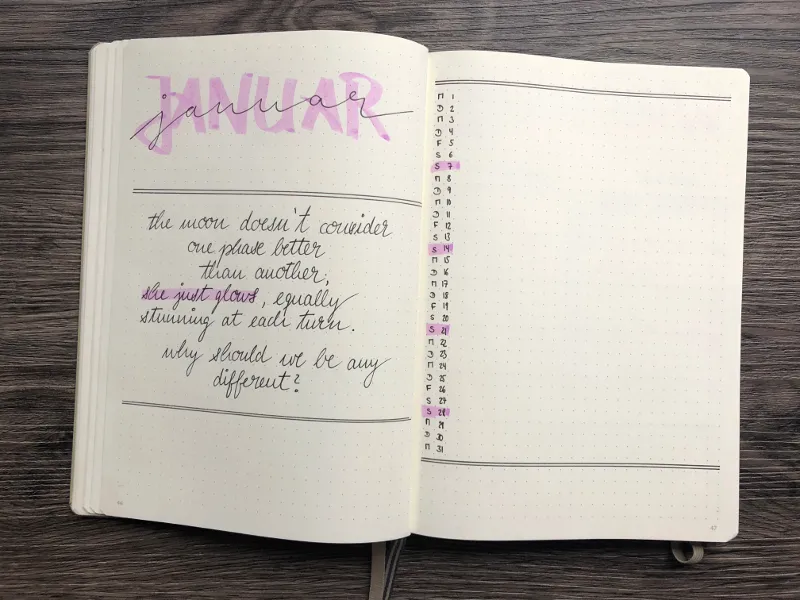 JANUAR
januar
the moon doesn't consider
one phase better
than another;
she just glows, equally
stunning at each turn.
why should we be any
different?
M 1
D 2
M 3
D 4
F 5
S 6
S 7
M 8
D 9
M 10
D 11
F 12
S 13
S 14
M 15
D 16
M 17
D 18
F 19
S 20
S 21
M 22
D 23
M 24
D 25
F 26
S 27
S 28
M 29
D 30
M 31
47